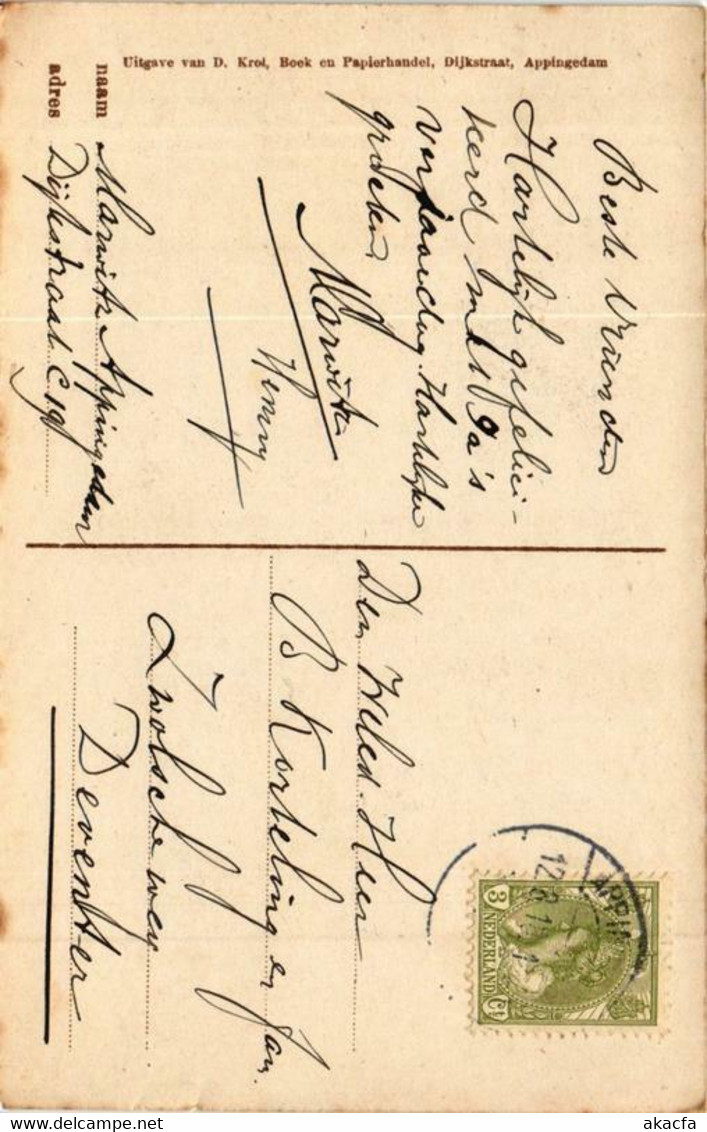 Uitgave van D. Krol, Boek en Papierhandel, Dijkstraat, Appingedam
Beste Vrienden
Hartelijk gefelici-
teerd met Pa's
verjaardag. Hartelijke
groeten
Marwitz
Henny
naam Marwitz Appingedam
adres Dijkstraat C
Den Weled. Heer
B Korteling en Jan.
Zwolscheweg
Deventer
APPIN
12. 8 1
3 NEDERLAND Ct
akacfa
www.delcampe.net